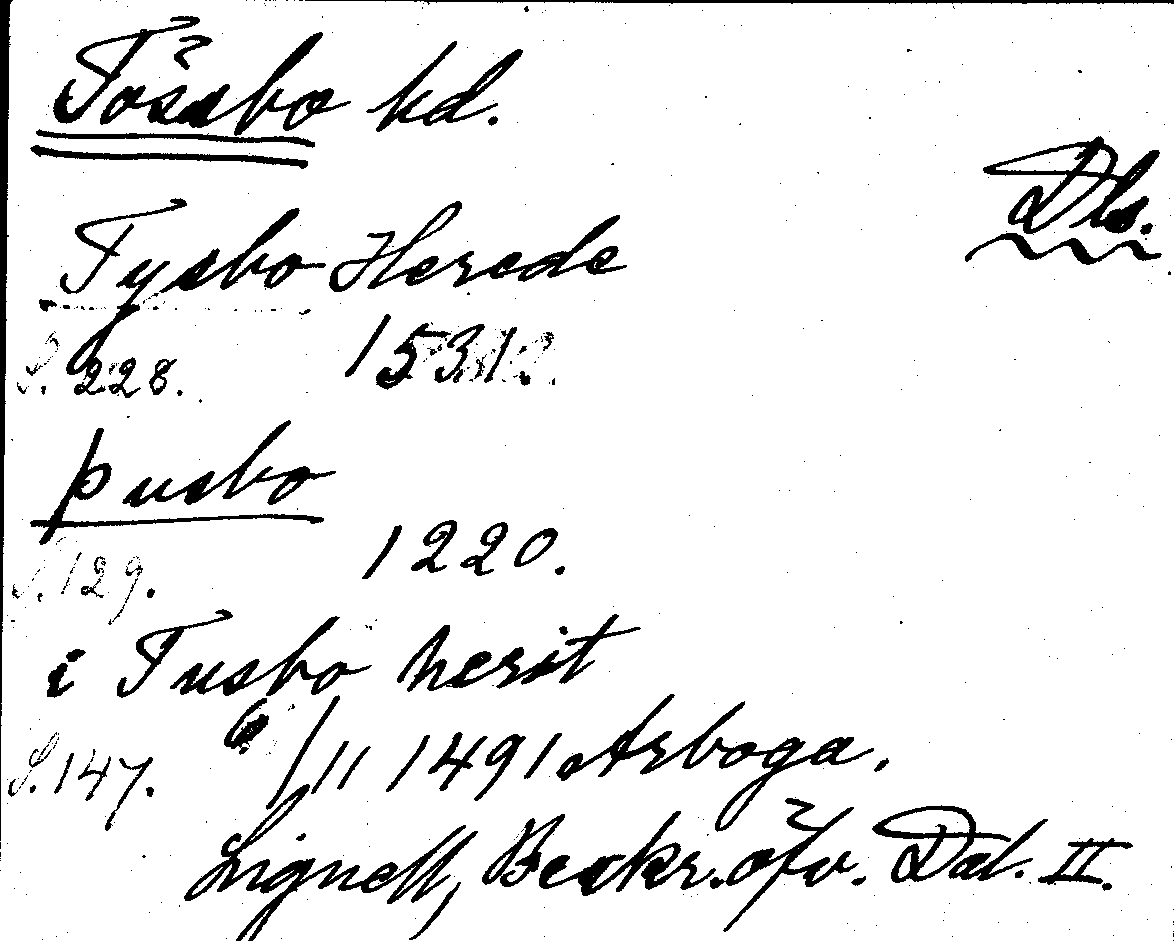 Tössbo hd.
Dls.
Tysbo Herede
S. 228. 1531
þusbo
S. 129. 1220.
i Tusbo herit
S. 147. 6/11 1491 Arboga.
Lignell, Beskr. öfv. Dal. II.